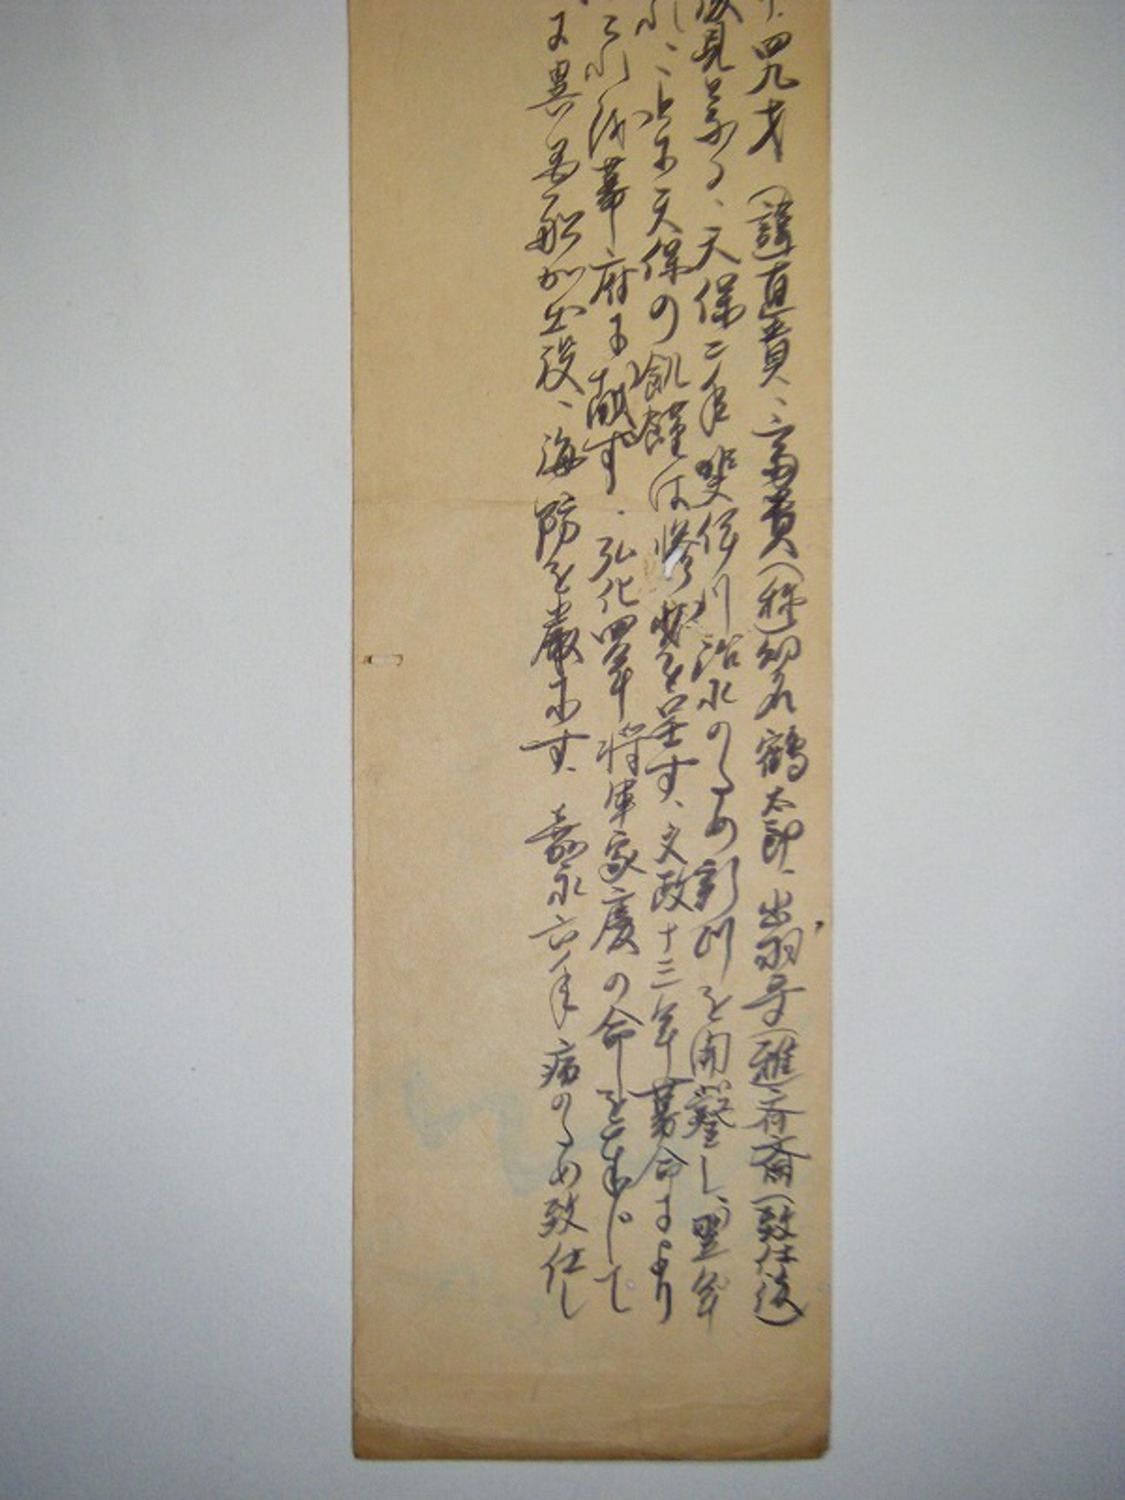 四九才（諱）直貴、斎貴（称）幼名鶴太郎、出羽守（雅斎斎（致仕後）
見る、天保二年斐伊川治水のため新川を開鑿し、翌年
天保の飢饉は惨状を呈す、文政十三年幕命により
幕府に献ず、弘化四年将軍家慶の命を奉じて
異国船が出役、海防を厳にす、嘉永六年病のため致仕し